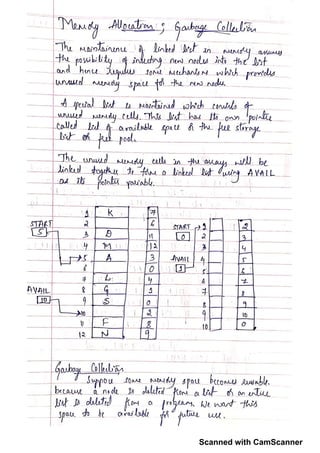 Memory Allocation ; Garbage Collection
The maintainence of linked list in memory assumes
the possibility of inserting new nodes into the list
and hence requires some mechanism which provides
unused memory space for the new nodes.
A special list is maintained which consists of
unused memory cells. This list has its own pointer
called list of available space or the free storage
list or free pool.
The unused memory cells in the arrays will be
linked together to form a linked list using AVAIL
as its pointer variable.
START
5
AVAIL
10
1 K 7
2 6
3 D 11
4 M 12
5 A 3
6 0
7 L 4
8 G 1
9 S 0
10 2
11 F 8
12 N 9
START
0
AVAIL
1
1 2
2 3
3 4
4 5
5 6
6 7
7 8
8 9
9 10
10 0
Garbage Collection
Suppose some memory space becomes reusable.
because a node is deleted from a list or an entire
list is deleted from a program. We want this
space to be available for future use.
Scanned with CamScanner